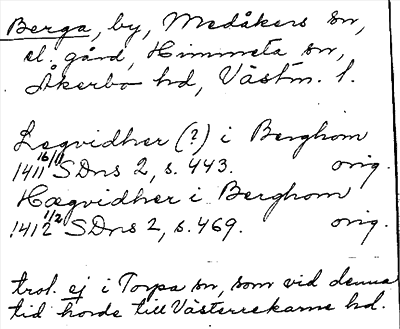 Berga, by, Medåkers sn,
el. gård, Himmeta sn,
Åkerbo hd, Västm. l.
Legvidher (?) i Berghom
1411 16/11 SDns 2, s. 443. orig.
Hægvidher i Berghom
1412 1/2 SDns 2, s. 469. orig.
trol. ej i Torpa sn, som vid denna
tid hörde till Västerrekarne hd.